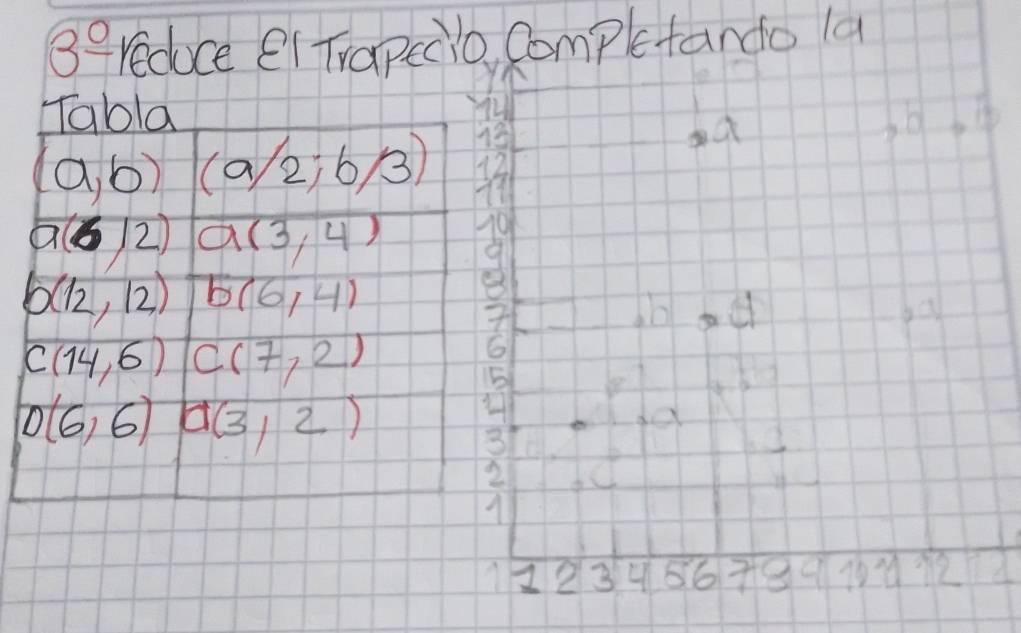 3º reduce El Trapecio Completando la
Tabla
(a,b) (a/2;b/3)
a(6,12) a(3,4)
b(12,12) b(6,4)
c(14,6) c(7,2)
D(6,6) d(3,2)
y
14
13
12
11
10
9
8
7
6
5
4
3
2
1
a
b
b
d
a
a
c
c
1 2 3 4 5 6 7 8 9 10 11 12